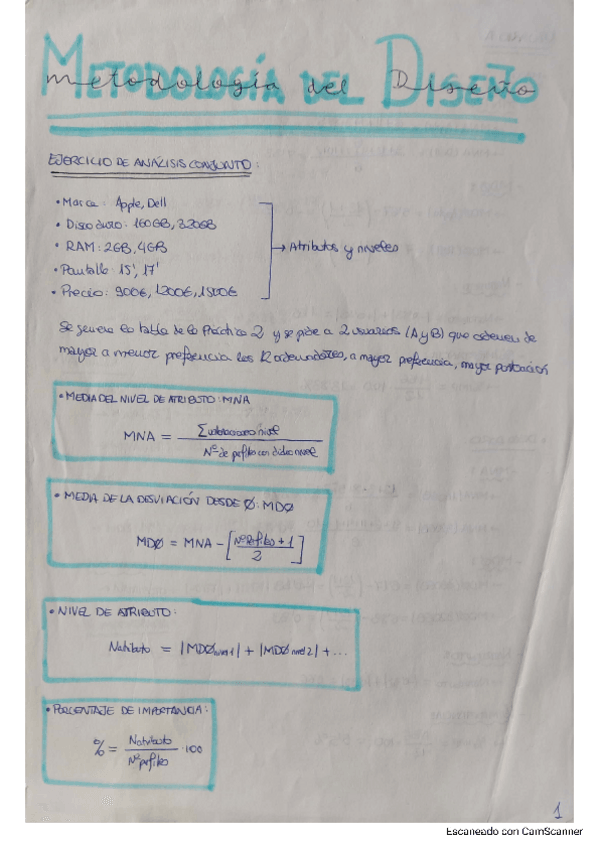 METODOLOGÍA DEL DISEÑO
metodología del Diseño
EJERCICIO DE ANÁLISIS CONJUNTO:
• Marca: Apple, Dell
• Disco duro: 160GB, 320GB
• RAM: 2GB, 4GB
• Pantalla: 15', 17'
• Precio: 900€, 1200€, 1500€
→ Atributos y niveles
Se genera la tabla de la Práctica 2 y se pide a 2 usuarios (A y B) que ordenen de
mayor a menor preferencia los 12 ordenadores, a mayor preferencia, mayor puntuación
• MEDIA DEL NIVEL DE ATRIBUTO: MNA
MNA = Σ nivel / Nº de perfiles con dicho nivel
• MEDIA DE LA DESVIACIÓN DESDE Ø: MDØ
MDØ = MNA - [Nº Perfiles + 1 / 2]
• NIVEL DE ATRIBUTO:
Natributo = |MDØnivel 1| + |MDØ nivel 2| + ...
• PORCENTAJE DE IMPORTANCIA:
% = Natributo / Nº perfiles · 100
1
Escaneado con CamScanner